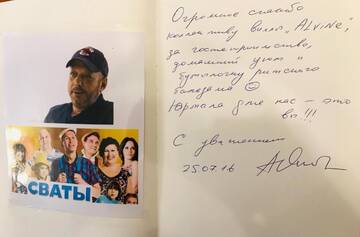 СВАТЫ
Огромное спасибо
коллективу виллы „ALVINE"
за гостеприимство,
домашний уют и
бутылочку рижского
бальзама
Юрмала для нас – это
вы!!!
С уважением
25.07.16